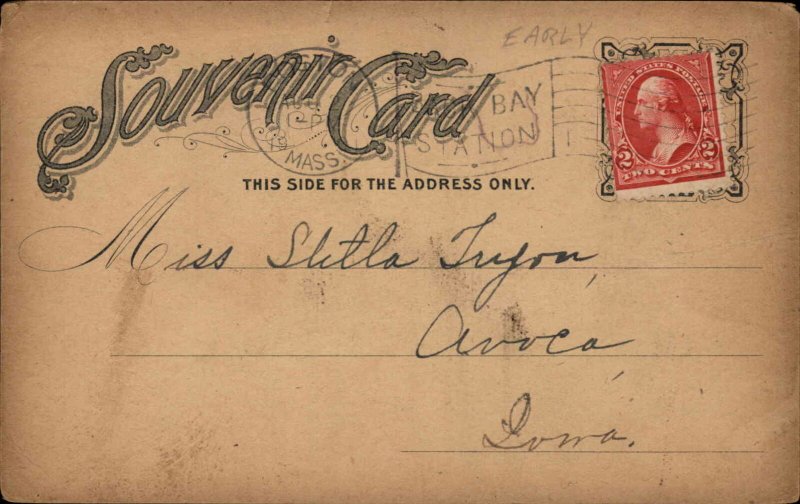 EARLY
Souvenir Card
MASS.
BAY
STATION
UNITED STATES POSTAGE
2 2
TWO CENTS
THIS SIDE FOR THE ADDRESS ONLY.
Miss Stella Tryon,
Avoca
Iowa.